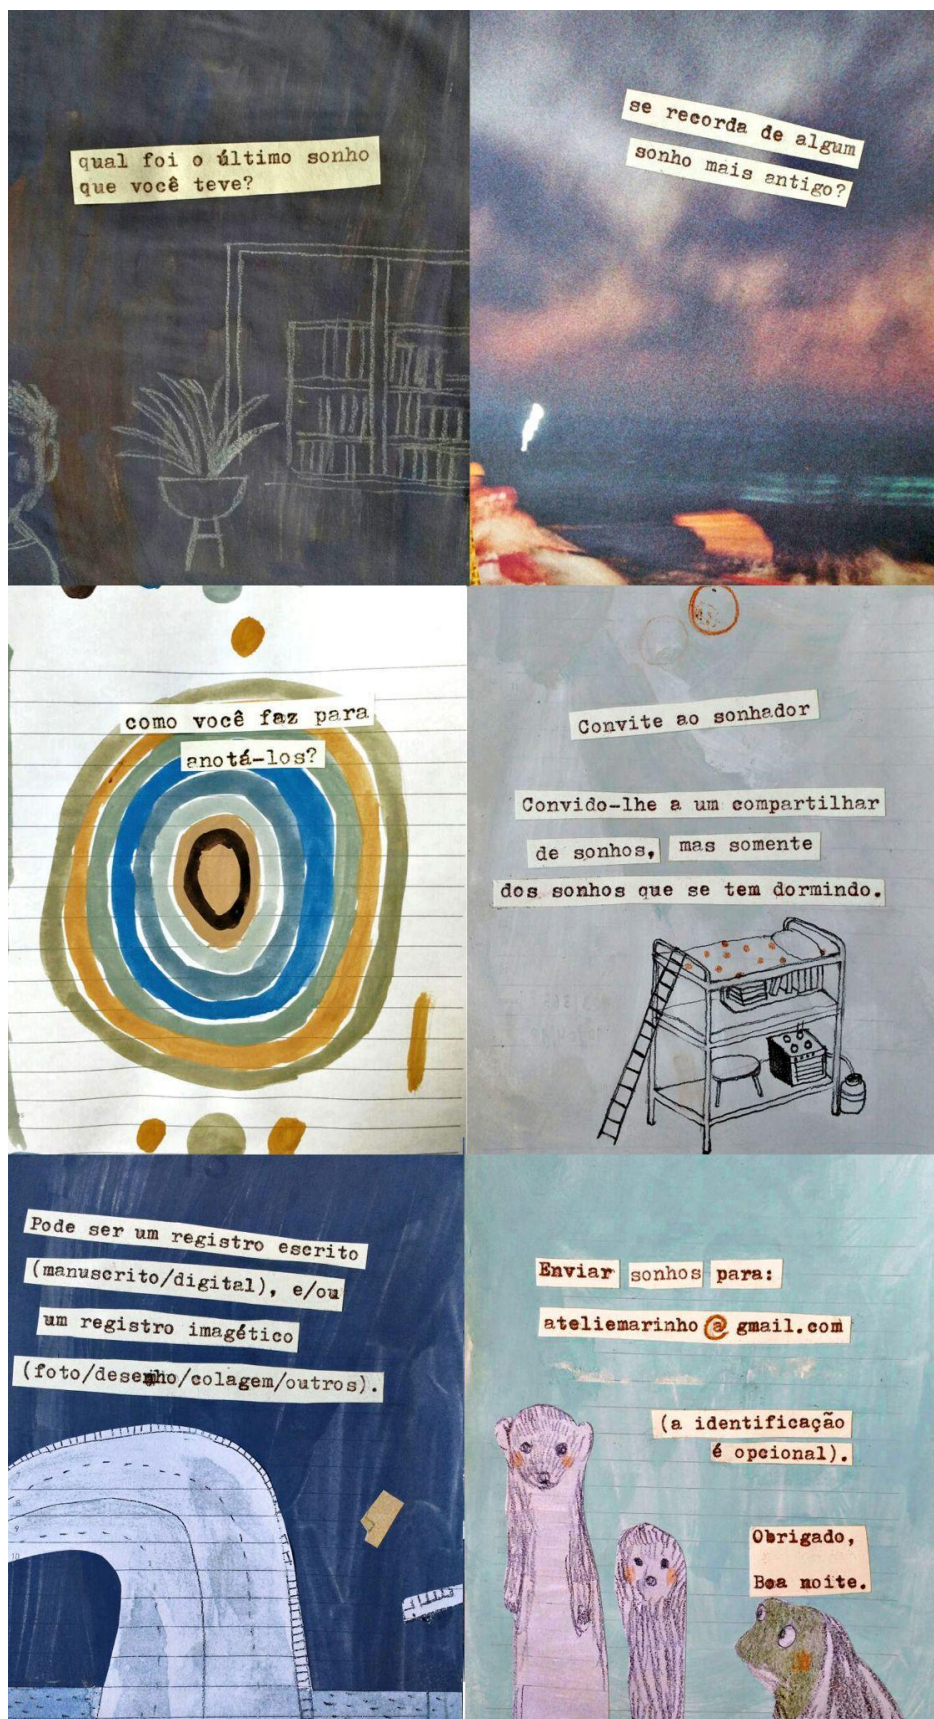 qual foi o último sonho
que você teve?
se recorda de algum
sonho mais antigo?
como você faz para
anotá-los?
Convite ao sonhador
Convido-lhe a um compartilhar
de sonhos, mas somente
dos sonhos que se tem dormindo.
Pode ser um registro escrito
(manuscrito/digital), e/ou
um registro imagético
(foto/desenho/colagem/outros).
Enviar sonhos para:
ateliemarinho@gmail.com
(a identificação
é opcional).
Obrigado,
Boa noite.